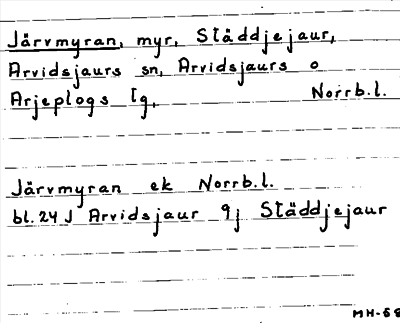 Järvmyran, myr, Ståddjejaur,
Arvidsjaurs sn, Arvidsjaurs o
Arjeplogs lg, Norrb.l.
Järvmyran ek Norrb.l.
bl. 24 J Arvidsjaur 9j Ståddjejaur
MH-68